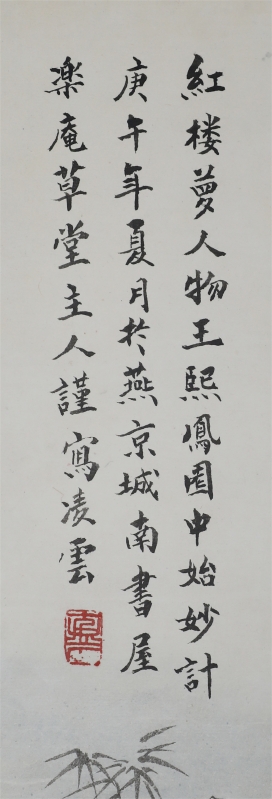 红楼夢人物王熙鳳園中始妙計
庚午年夏月於燕京城南書屋
楽庵草堂主人謹寫凌雲